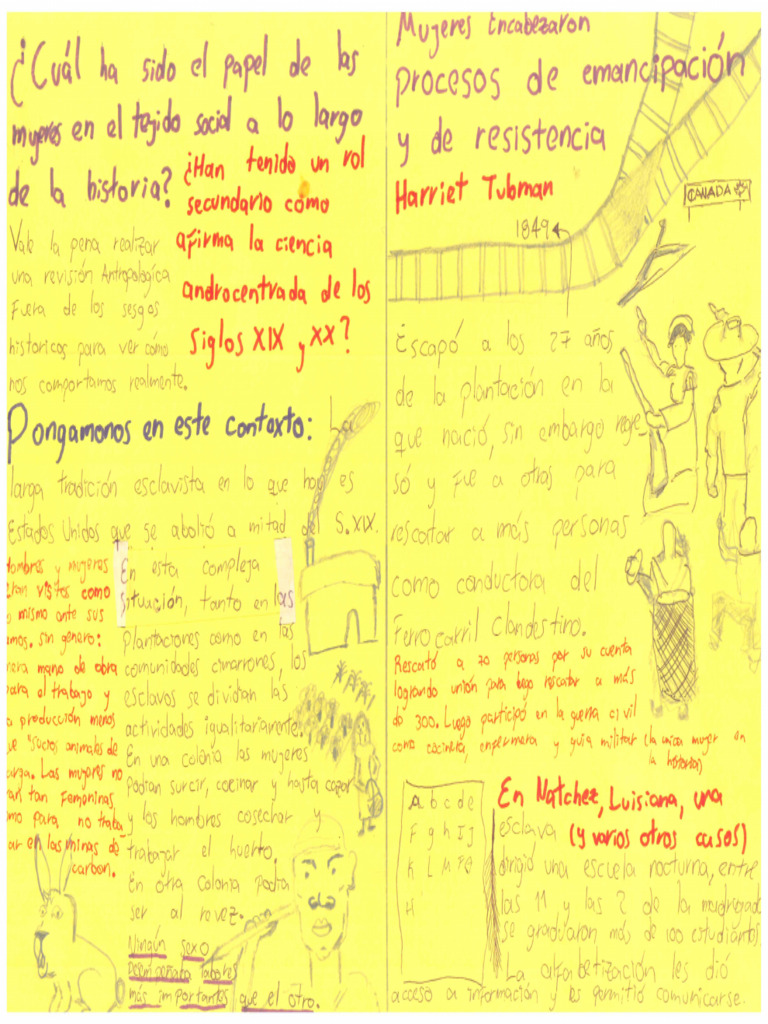 ¿Cuál ha sido el papel de las
mujeres en el tejido social a lo largo
de la historia?
¿Han tenido un rol
secundario como
afirma la ciencia
androcentrada de los
Siglos XIX y XX?
Vale la pena realizar
una revisión Antropológica
Fuera de los sesgos
historicos para ver cómo
nos comportamos realmente.
Pongamonos en este contexto: La
larga tradición esclavista en lo que hoy es
Estados Unidos que se abolió a mitad del S.XIX.
Hombres y mujeres
eran vistos como
lo mismo ante sus
amos. sin género:
mera mano de obra
para el trabajo y
la producción menos
que "sucios animales de
carga. Las mujeres no
eran tan femeninas,
como para no traba
jar en las minas de
carbon.
En esta compleja
situación, tanto en las
plantaciones como en las
comunidades cimarrones, los
esclavos se dividian las
actividades igualitariamente.
En una colonia las mujeres
podian surcir, cocinar y hasta cazar
y los hombres cosechar y
trabajar el huerto.
En otra colonia podia
ser al revez.
Ningún sexo
desempeñaba labores
más importantes que el otro.
Mujeres Encabezaron
procesos de emancipación
y de resistencia
Harriet Tubman
CANADA
1849
Escapó a los 27 años
de la plantación en la
que nació, sin embargo regre
só y fue a otras para
rescatar a más personas
como conductora del
Ferrocarril Clandestino.
Rescató a 70 personas por su cuenta
logrando unión para luego rescatar a más
de 300. Luego participó en la guerra civil
como cocinera, enfermera y guia militar (la unica mujer en
la historia)
A b c d e
F g h I J
K L M Ñ O
H
En Natchez, Luisiana, una
esclava (y varios otros casos)
dirigió una escuela nocturna, entre
las 11 y las 2 de la madrugada
se graduaron más de 100 estudiantes
La alfabetización les dió
acceso a información y les permitió comunicarse.